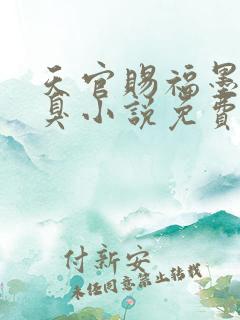 天官賜福墨
臭小說免費
付新安
未经同意禁止转载